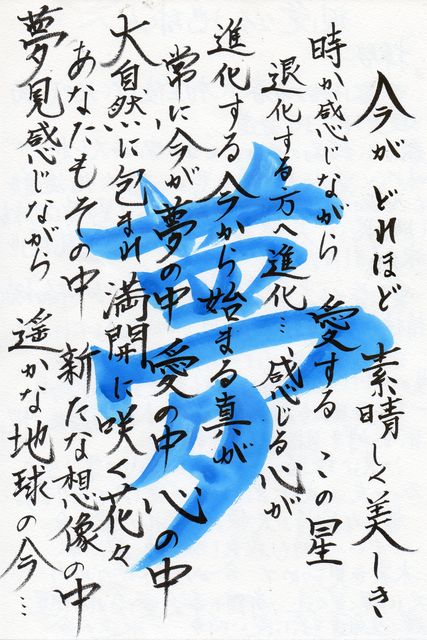 今がどれほど 素晴しく美しき
時か感じながら 愛する この星
退化する方へ進化… 感じる心が
進化する今から始まる真が
常に今が夢の中 愛の中 心の中
大自然に包まれ 満開に咲く花々
あなたもその中 新たな想像の中
夢見感じながら 遥かな地球の今…
夢